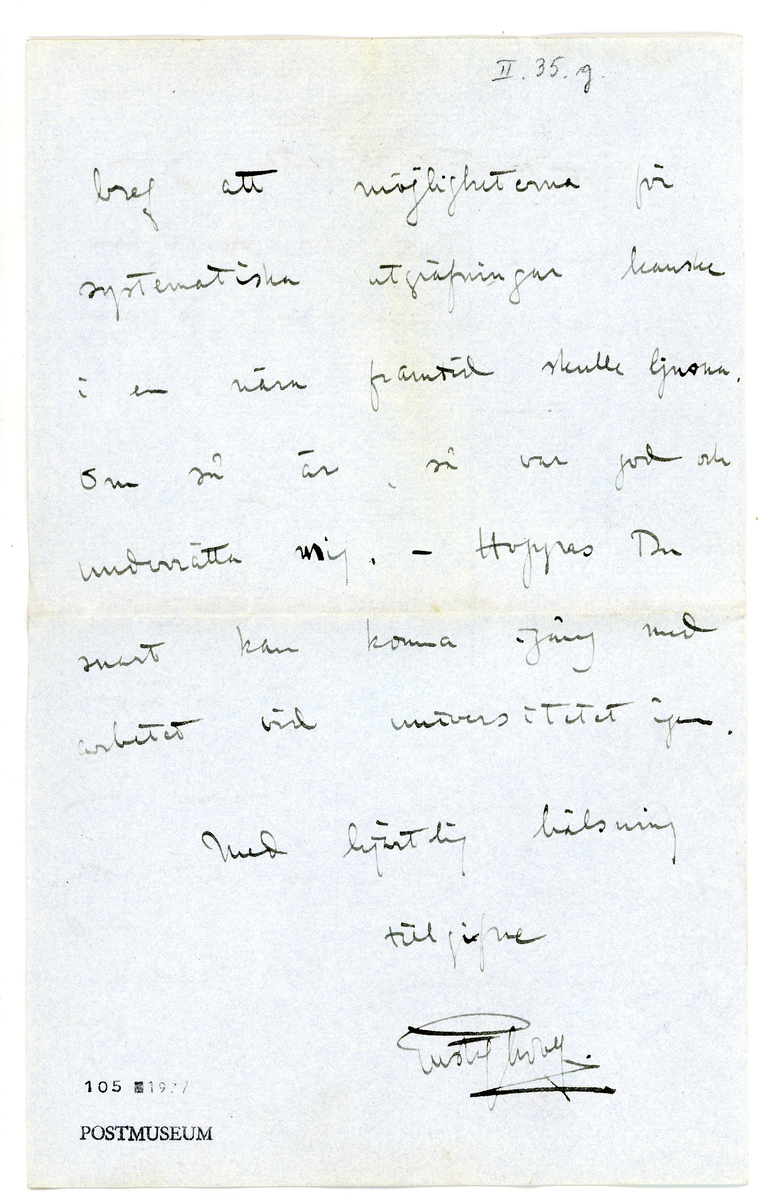 II. 35. g.
bref att möjligheterna för
systematiska utgräfningar kanske
i en nära framtid skulle ljusna.
Om så är, så var god och
underrätta mig. – Hoppas Du
snart kan komma igång med
arbetet vid universitetet igen.
Med hjärtlig hälsning
tillgifne
Gustaf
105 1977
POSTMUSEUM